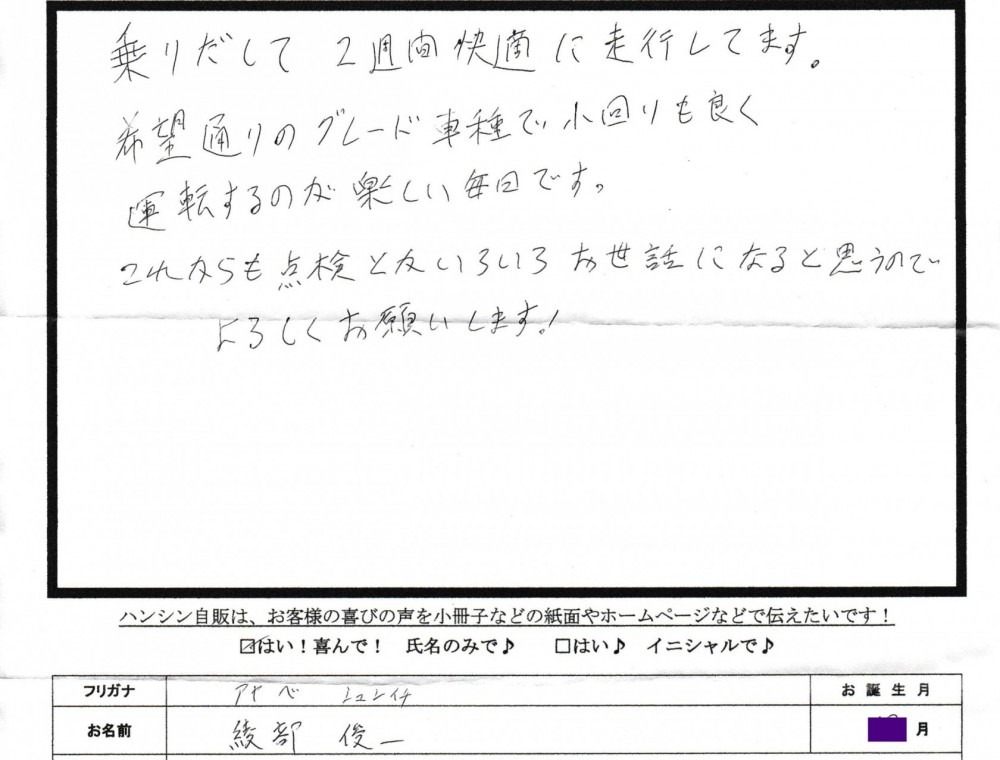 乗りだして 2週間快適に走行してます。
希望通りのグレード車種で小回りも良く
運転するのが楽しい毎日です。
これからも点検といろいろお世話になると思うので
よろしくお願いします!
ハンシン自販は、お客様の喜びの声を小冊子などの紙面やホームページなどで伝えたいです!
☑はい!喜んで! 氏名のみで♪ □はい♪ イニシャルで♪
フリガナ アヤベ シュンイチ お誕生月
お名前 綾部 俊一 月